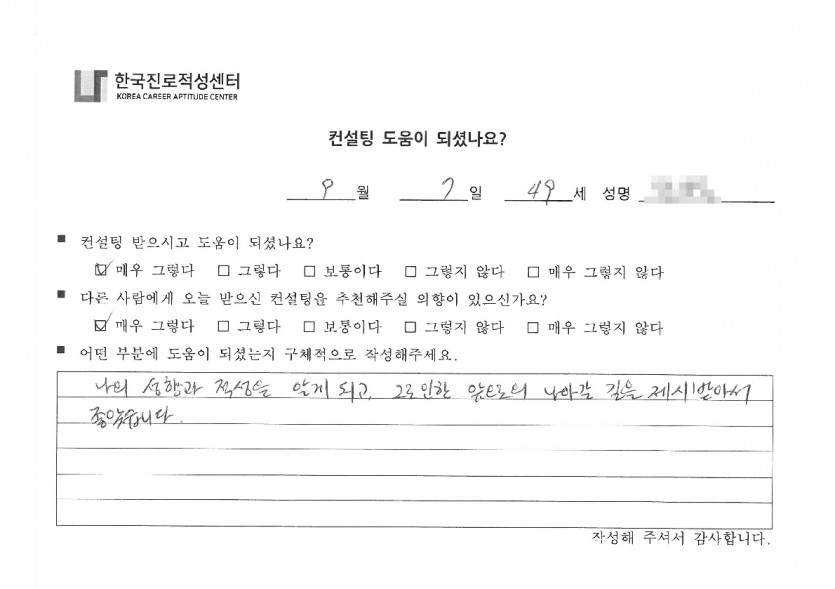 한국진로적성센터
KOREA CAREER APTITUDE CENTER
컨설팅 도움이 되셨나요?
9 월 7 일 49 세 성명
■ 컨설팅 받으시고 도움이 되셨나요?
☑ 매우 그렇다 □ 그렇다 □ 보통이다 □ 그렇지 않다 □ 매우 그렇지 않다
■ 다른 사람에게 오늘 받으신 컨설팅을 추천해주실 의향이 있으신가요?
☑ 매우 그렇다 □ 그렇다 □ 보통이다 □ 그렇지 않다 □ 매우 그렇지 않다
■ 어떤 부분에 도움이 되셨는지 구체적으로 작성해주세요.
나의 성향과 적성을 알게 되고, 그로인한 앞으로의 나아갈 길을 제시받아서
좋았습니다.
작성해 주셔서 감사합니다.